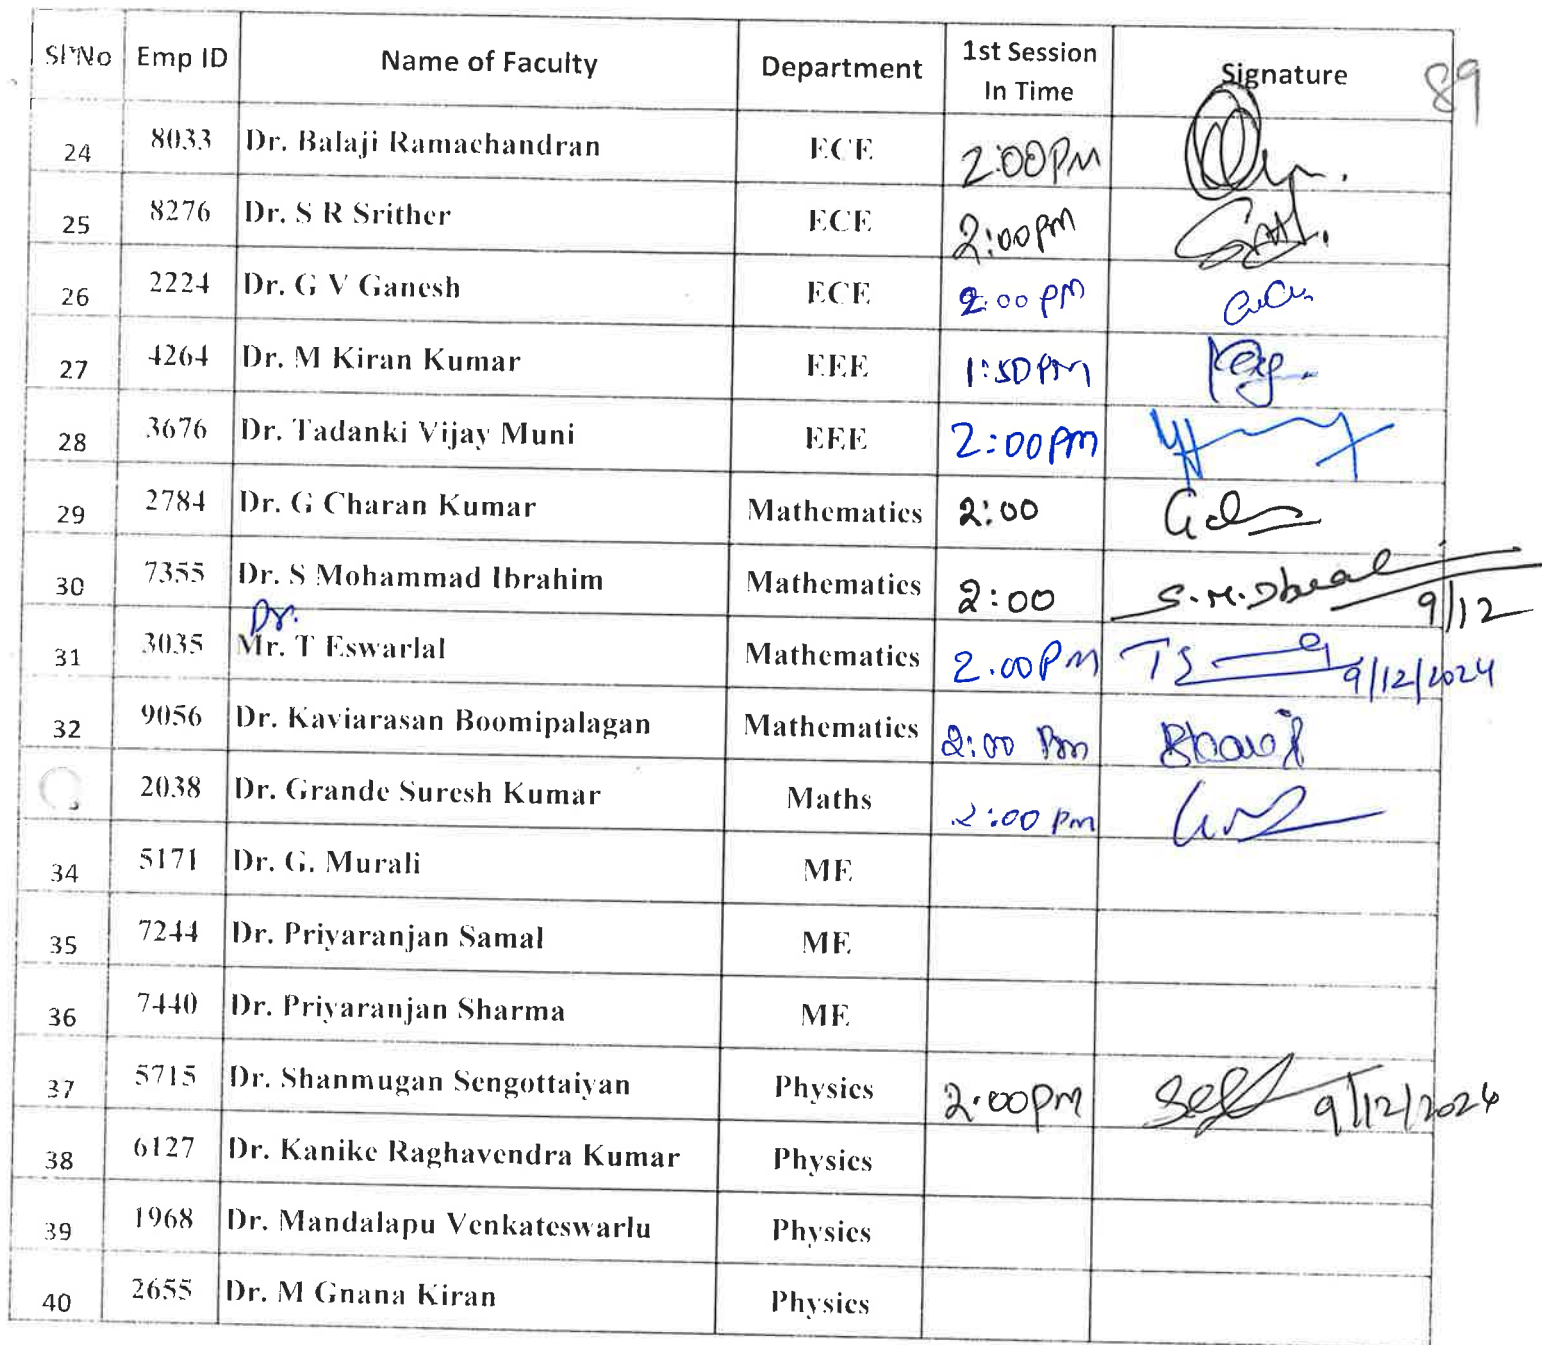 89
Sl No Emp ID Name of Faculty Department 1st Session In Time Signature
24 8033 Dr. Balaji Ramachandran ECE 2:00PM
25 8276 Dr. S R Srither ECE 2:00pm
26 2224 Dr. G V Ganesh ECE 2:00 pm
27 4264 Dr. M Kiran Kumar EEE 1:50pm
28 3676 Dr. Tadanki Vijay Muni EEE 2:00pm
29 2784 Dr. G Charan Kumar Mathematics 2:00
30 7355 Dr. S Mohammad Ibrahim Mathematics 2:00 9/12
Dr.
31 3035 Mr. T Eswarlal Mathematics 2.00PM 9/12/2024
32 9056 Dr. Kaviarasan Boomipalagan Mathematics 2:00 Pm
2038 Dr. Grande Suresh Kumar Maths 2:00 pm
34 5171 Dr. G. Murali ME
35 7244 Dr. Priyaranjan Samal ME
36 7440 Dr. Priyaranjan Sharma ME
37 5715 Dr. Shanmugan Sengottaiyan Physics 2.00pm 9/12/2024
38 6127 Dr. Kanike Raghavendra Kumar Physics
39 1968 Dr. Mandalapu Venkateswarlu Physics
40 2655 Dr. M Gnana Kiran Physics